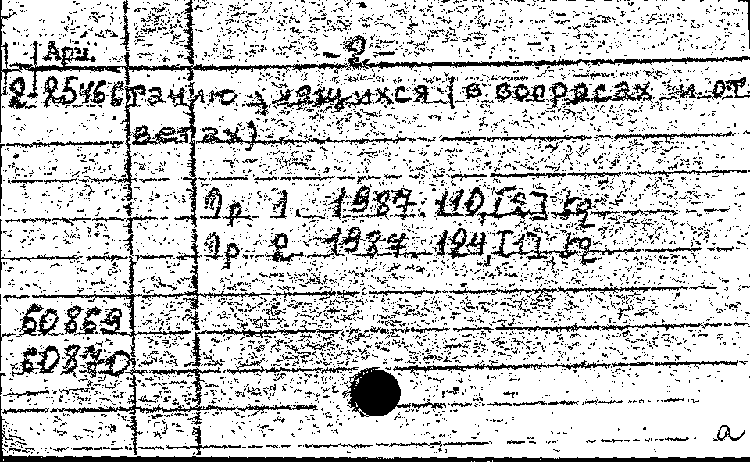 - 2 -
Арм.
2-25466 танию учащихся (в вопросах и от
ветах)
Пр 1. 1987. 110,[2] էջ
Пр. 2 1987. 124,[1] էջ
60869
60870
a